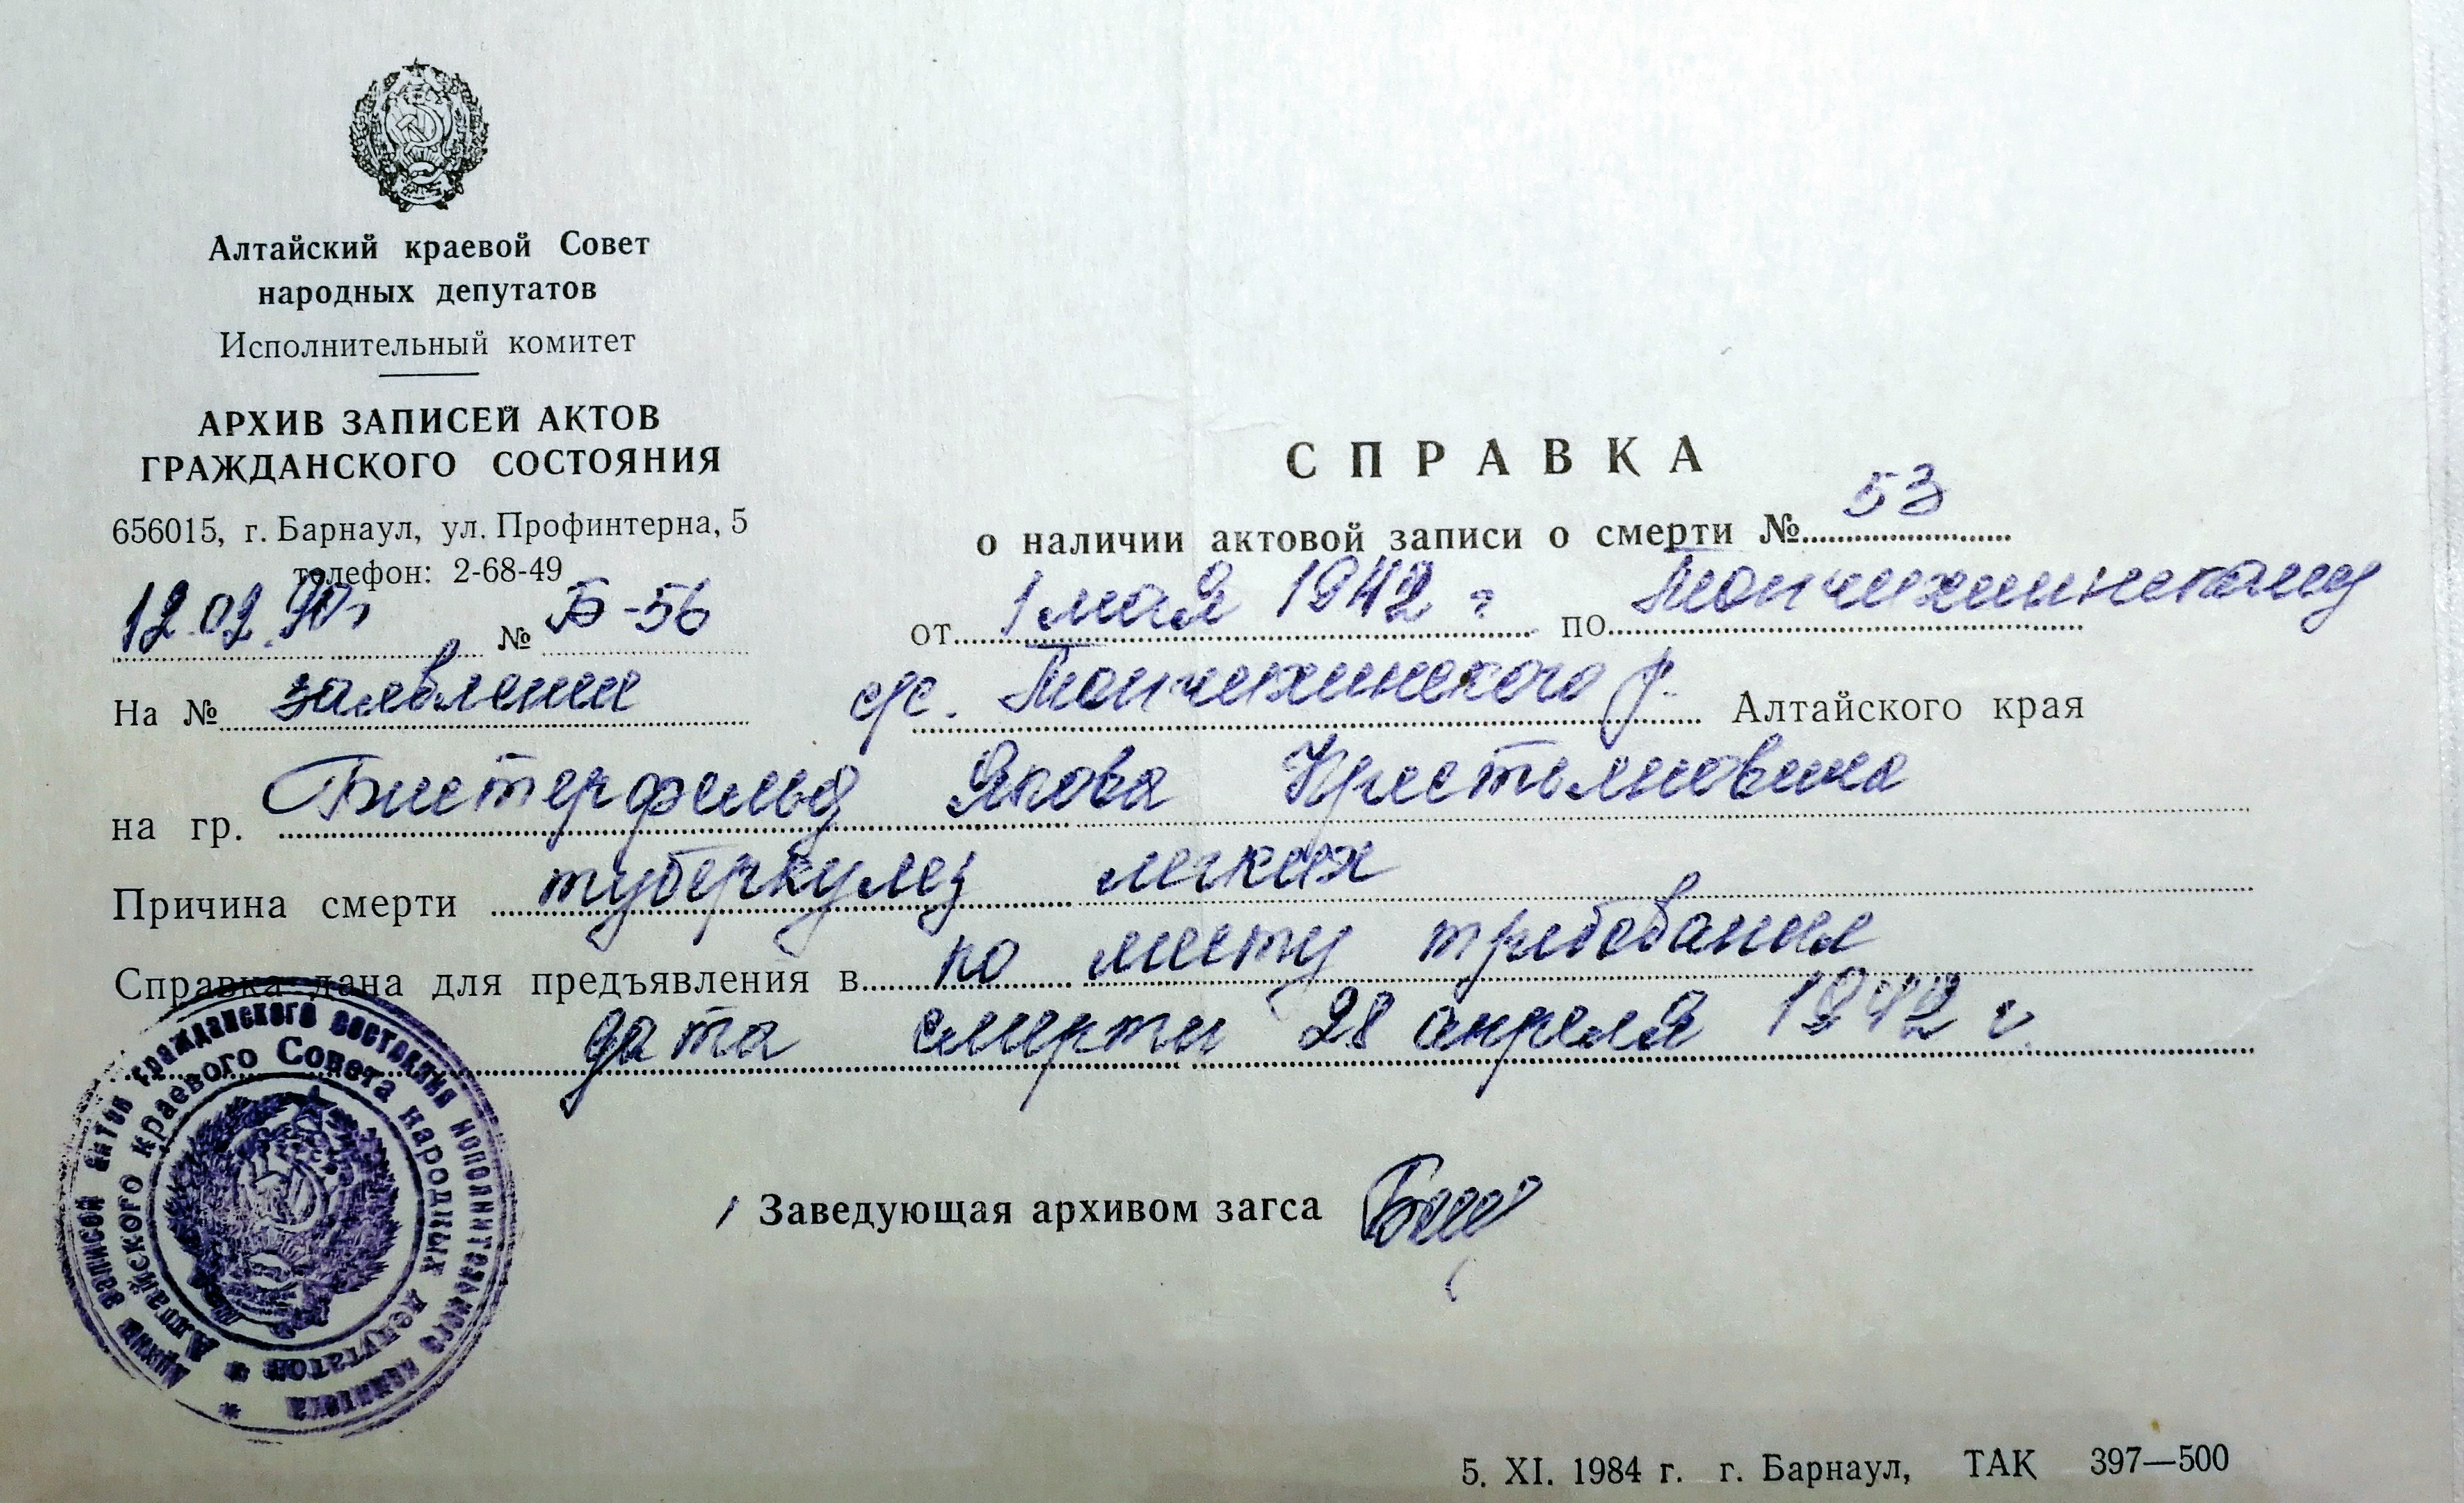 Алтайский краевой Совет
народных депутатов
Исполнительный комитет
АРХИВ ЗАПИСЕЙ АКТОВ
ГРАЖДАНСКОГО СОСТОЯНИЯ
656015, г. Барнаул, ул. Профинтерна, 5
телефон: 2-68-49
12.02.90г № Б-56
На № заявлении
СПРАВКА
о наличии актовой записи о смерти № 53
от 1 мая 1942 г по Топчихинскому
с/с. Топчихинского р. Алтайского края
на гр. Бистерфельд Якова Кристьяновича
Причина смерти туберкулез легких
Справка дана для предъявления в по месту требования
дата смерти 28 апреля 1942 г
Заведующая архивом загса
Архив записей актов гражданского состояния исполнительного комитета *
Алтайского краевого Совета народных депутатов
5. XI. 1984 г. г. Барнаул, ТАК 397—500